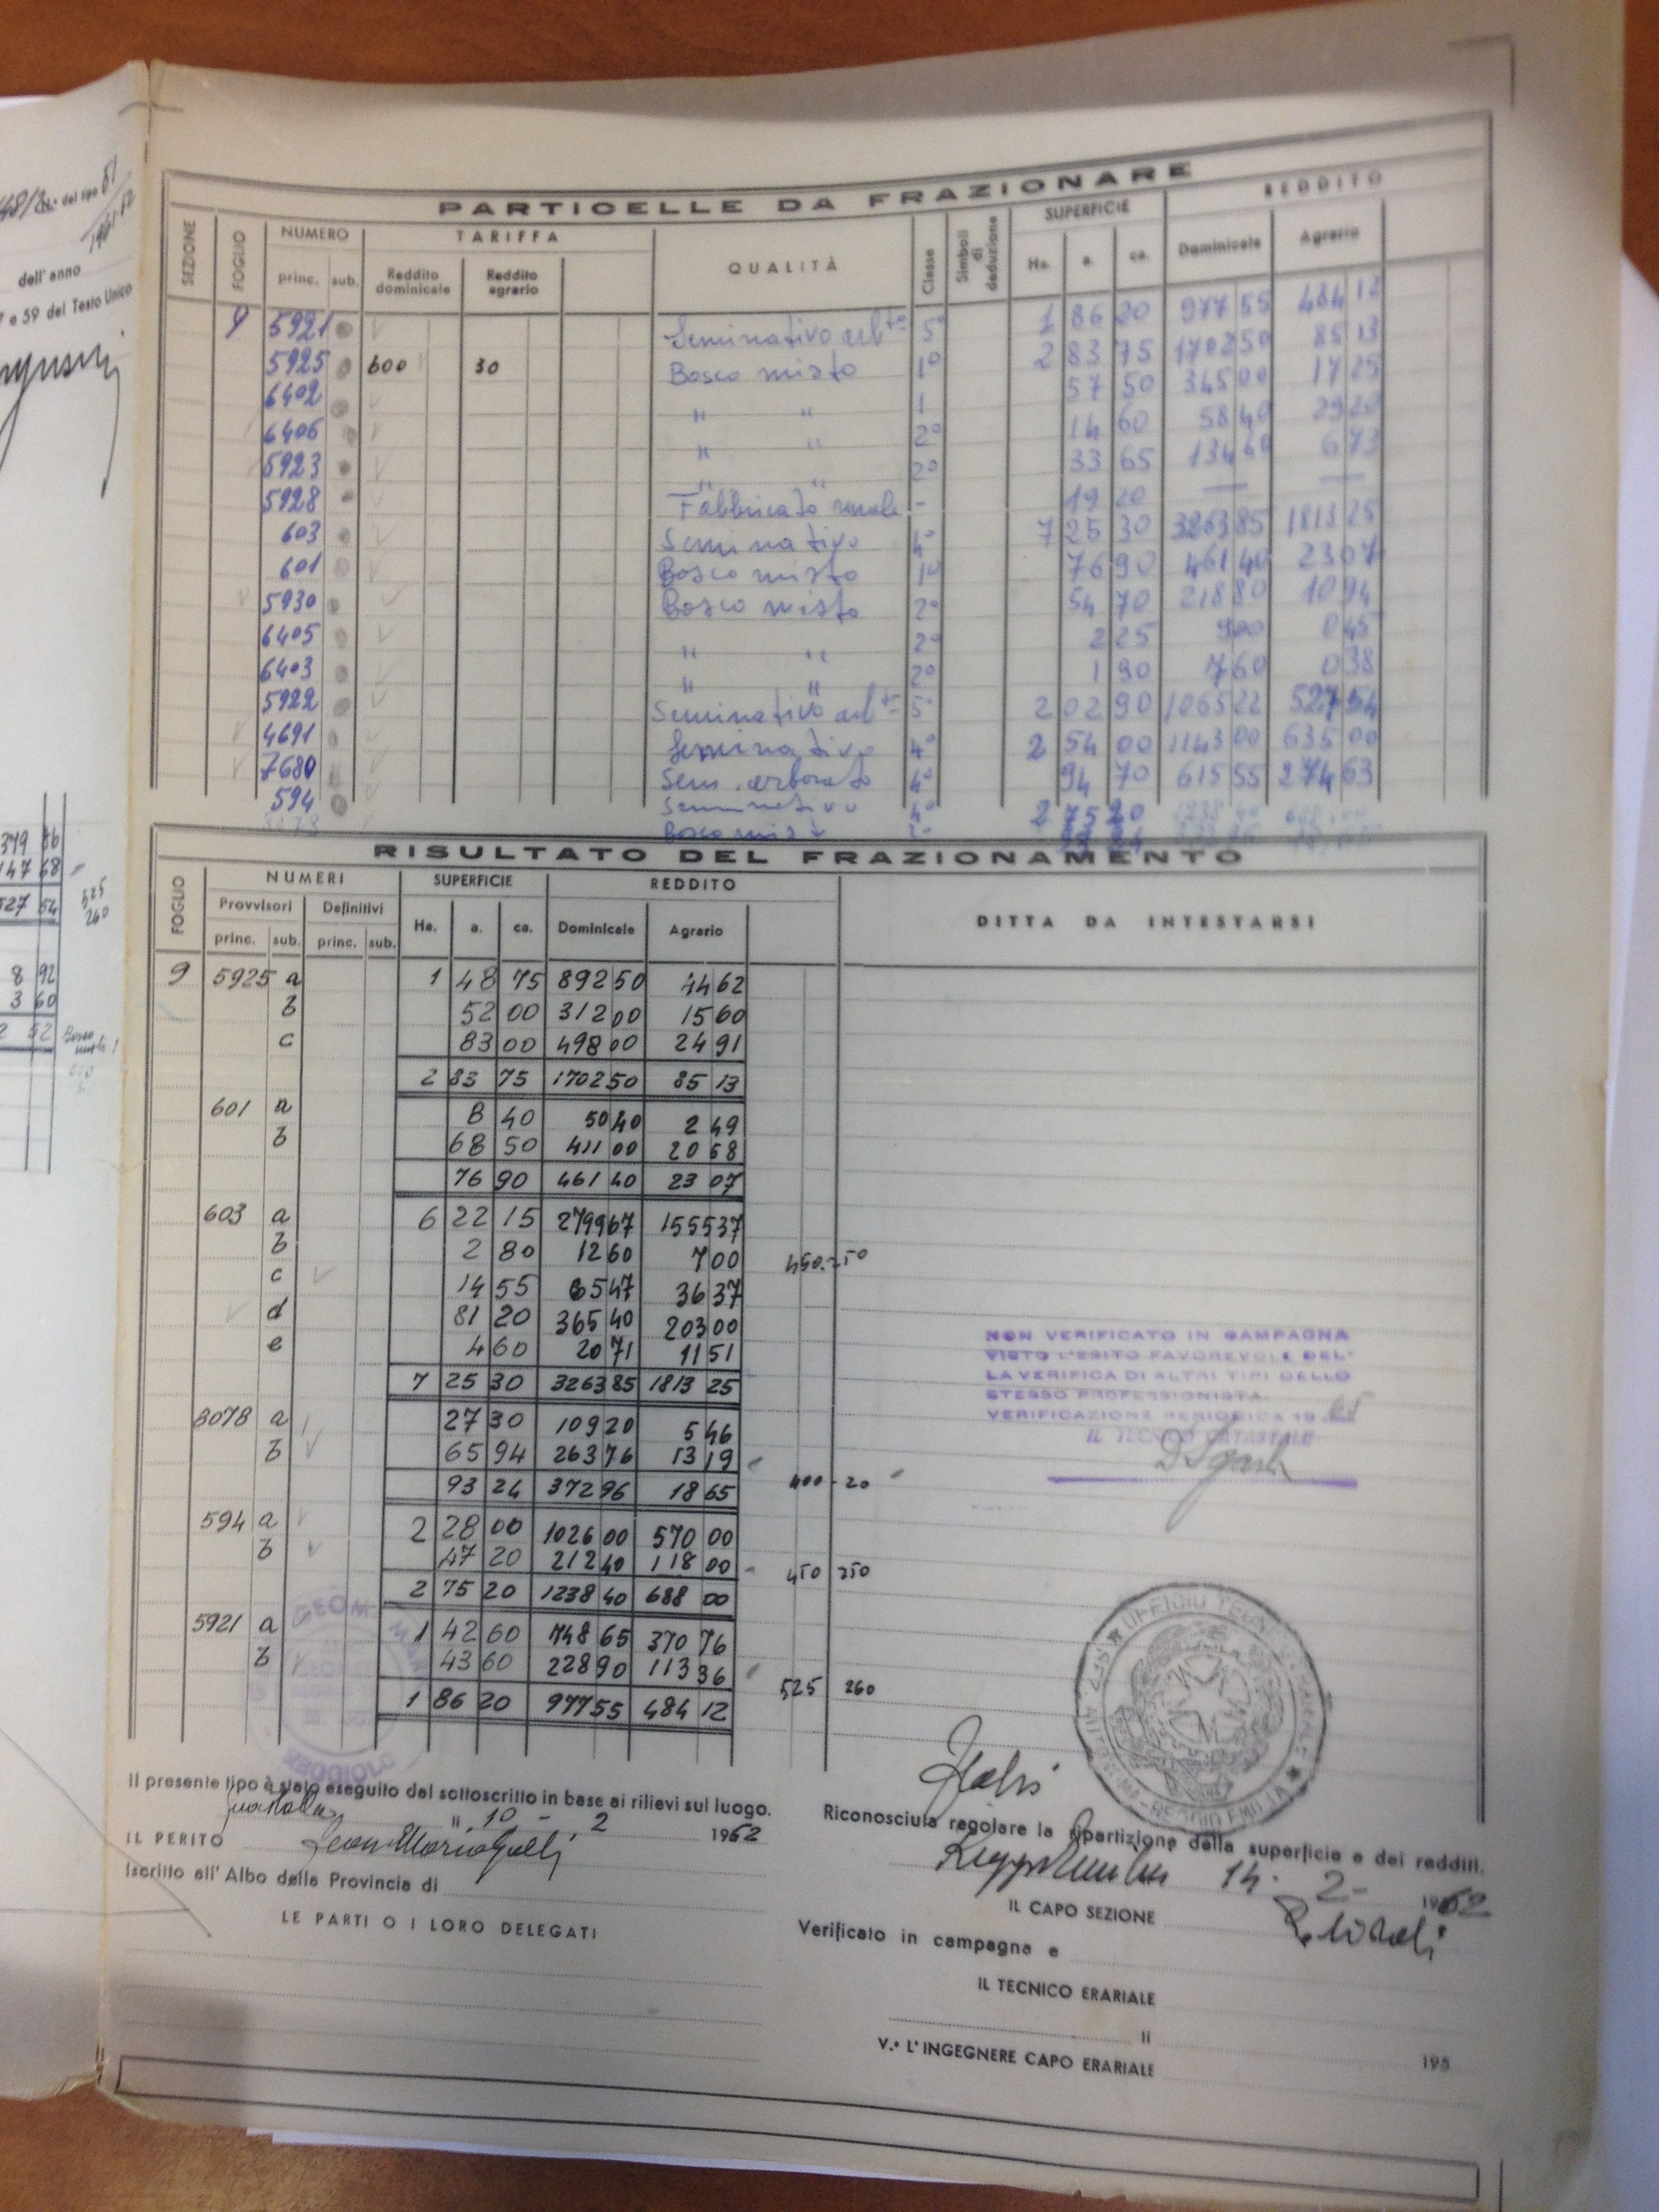 dell'anno
7 e 59 del Testo Unico
PARTICELLE DA FRAZIONARE
SEZIONE FOGLIO NUMERO TARIFFA QUALITÀ Classe Simboli di deduzione SUPERFICIE REDDITO
princ. sub. Reddito dominicale Reddito agrario Ha. a. ca. Dominicale Agrario
9 5921 Seminativo arb 5° 1 86 20 977 55 484 12
5925 600 30 Bosco misto 1° 2 83 75 1702 50 85 13
6402 " " 1 57 50 345 00 17 25
6406 " " 2° 14 60 58 40 2920
5923 " " 2° 33 65 134 60 6 73
5928 Fabbricato rurale - 19 20 — —
603 Seminativo 4° 7 25 30 3263 85 1813 25
601 Bosco misto 1° 76 90 461 40 23 07
5930 Bosco misto 2° 54 70 218 80 10 94
6405 " " 2° 2 25 9 00 0 45
6403 " " 2° 1 90 7 60 0 38
5922 Seminativo arb 5° 2 02 90 1065 22 527 54
4691 Seminativo 4° 2 54 00 1143 00 635 00
7680 Sem. arborato 4° 94 70 615 55 274 63
594 Seminativo 4° 2 75 20
Bosco misto
RISULTATO DEL FRAZIONAMENTO
FOGLIO NUMERI SUPERFICIE REDDITO DITTA DA INTESTARSI
Provvisori Definitivi Ha. a. ca. Dominicale Agrario
princ. sub. princ. sub.
9 5925 a 1 48 75 892 50 44 62
b 52 00 312 00 15 60
c 83 00 498 00 24 91
2 83 75 1702 50 85 13
601 a 8 40 50 40 2 49
b 68 50 411 00 20 58
76 90 461 40 23 07
603 a 6 22 15 2799 67 1555 37
b 2 80 12 60 7 00 450 - 250
c 14 55 65 47 36 37
d 81 20 365 40 203 00
e 4 60 20 71 11 51
7 25 30 3263 85 1813 25
8078 a 27 30 109 20 5 46
b 65 94 263 76 13 19
93 24 372 96 18 65 400 - 20
594 a 2 28 00 1026 00 570 00
b 47 20 212 40 118 00 450 250
2 75 20 1238 40 688 00
5921 a 1 42 60 748 65 370 76
b 43 60 228 90 113 36
1 86 20 977 55 484 12 525 260
NON VERIFICATO IN CAMPAGNA
VISTO L'ESITO FAVOREVOLE DEL-
LA VERIFICA DI ALTRI TIPI DELLO
STESSO PROFESSIONISTA
VERIFICAZIONE PERIODICA 19
IL TECNICO CATASTALE
GEOM.
UFFICIO TECNICO ERARIALE
REGGIO EMILIA
Il presente tipo è stato eseguito dal sottoscritto in base ai rilievi sul luogo.
Guastalla, li 10 - 2 1962
IL PERITO Geom. Mario Galli
Iscritto all' Albo della Provincia di
LE PARTI O I LORO DELEGATI
Riconosciuta regolare la ripartizione della superficie e dei redditi.
Reggio Emilia 14. 2- 1962
IL CAPO SEZIONE
Verificato in campagna e
IL TECNICO ERARIALE
li
V.° L'INGEGNERE CAPO ERARIALE 195